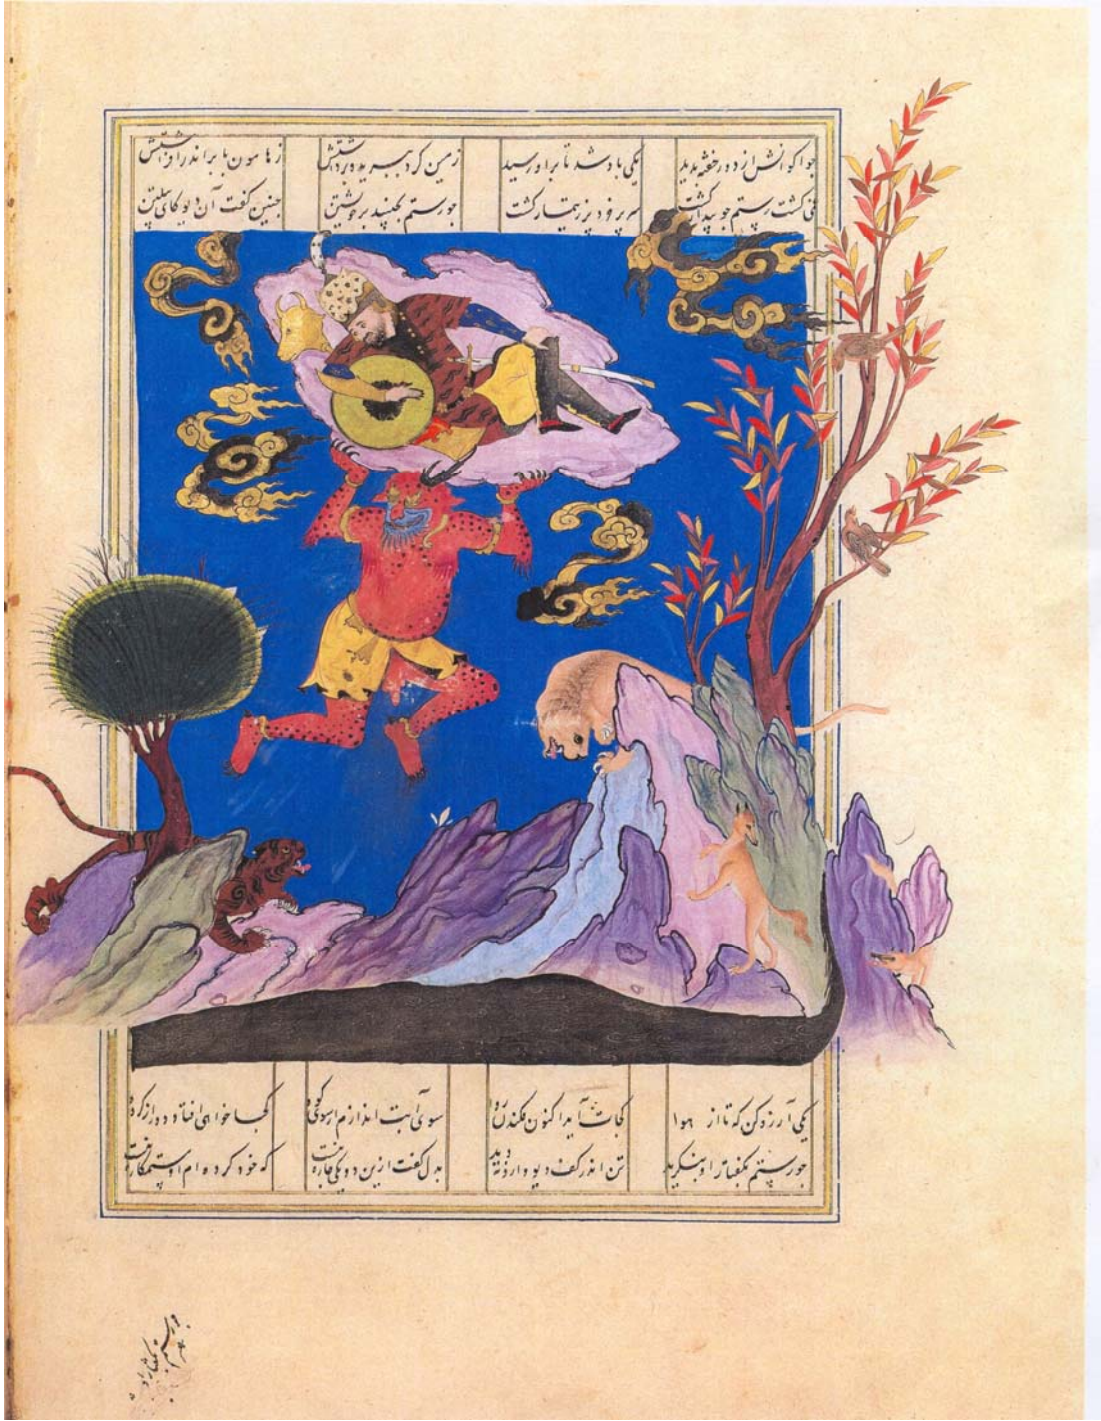 جو اکوانش از دور خفته بدید یکی باد شد تا بر او رسید زمین کرد ببرید و برداشتش ز هامون بابر اندر افراشتش
غمی گشت رستم جو بیدار گشت سر پر خرد پر ز تیمار گشت جو رستم بجنبید بر خویشتن جنین گفت آن دیو کای پیلتن
یکی آرزو کن که تا از هوا کجات آید اکنون فکندن روا سوی آبت اندازم ار سوی کوه کجا خواهی افتاد دور از گروه
جو رستم بگفتار او بنگرید تن اندر کف دیو وارونه دید بدل گفت ازین دو یکی که خود کرده ام او